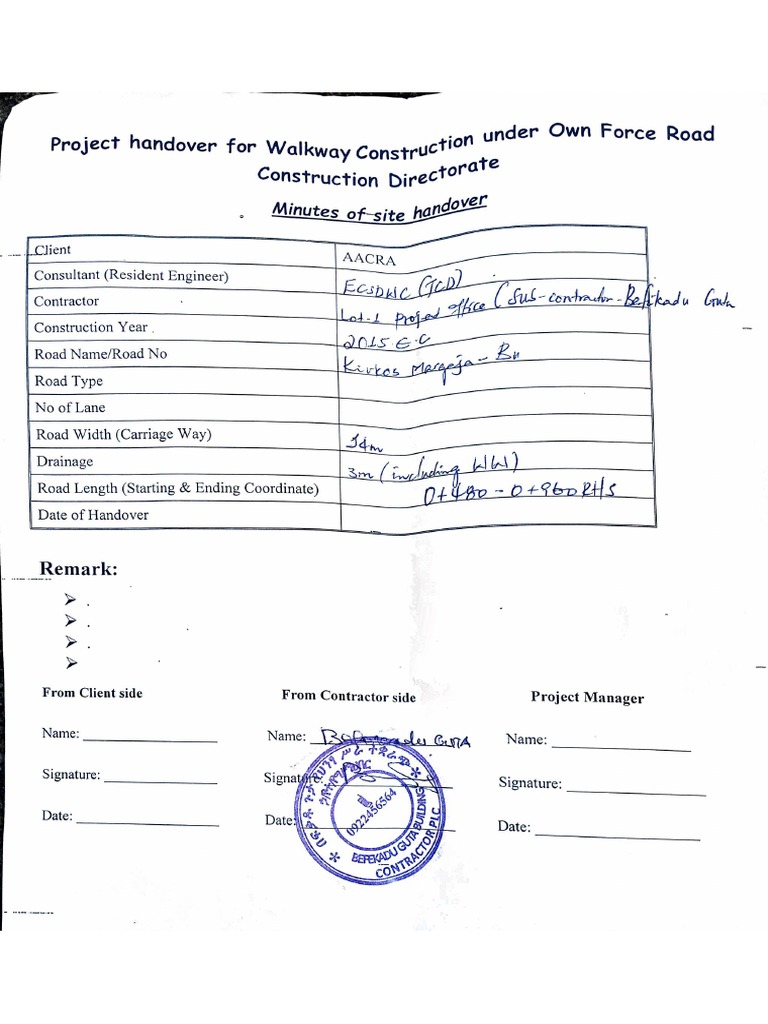 Project handover for Walkway Construction under Own Force Road
Construction Directorate
Minutes of site handover
Client AACRA
Consultant (Resident Engineer) ECSDWC (TCD)
Contractor Lot-1 Project office (Sub-contractor-Befikadu Guta
Construction Year 2015 E.C
Road Name/Road No Kirkos Margeja - Bu
Road Type
No of Lane
Road Width (Carriage Way) 14m
Drainage 3m (including WW)
Road Length (Starting & Ending Coordinate) 0+480 - 0+960 RHS
Date of Handover
Remark:
From Client side From Contractor side Project Manager
Name: Name: GUTA Name:
Signature: Signature: Signature:
Date: Date: Date:
0922456564
BEPEKADU GUTA BUILDING
CONTRACTOR PLC